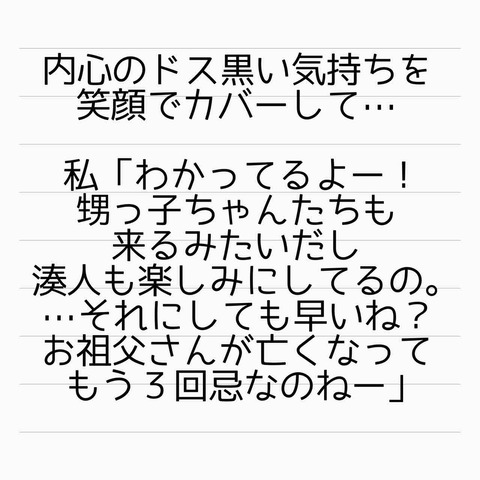 内心のドス黒い気持ちを
笑顔でカバーして…
私「わかってるよー！
甥っ子ちゃんたちも
来るみたいだし
湊人も楽しみにしてるの。
…それにしても早いね？
お祖父さんが亡くなって
もう３回忌なのねー」